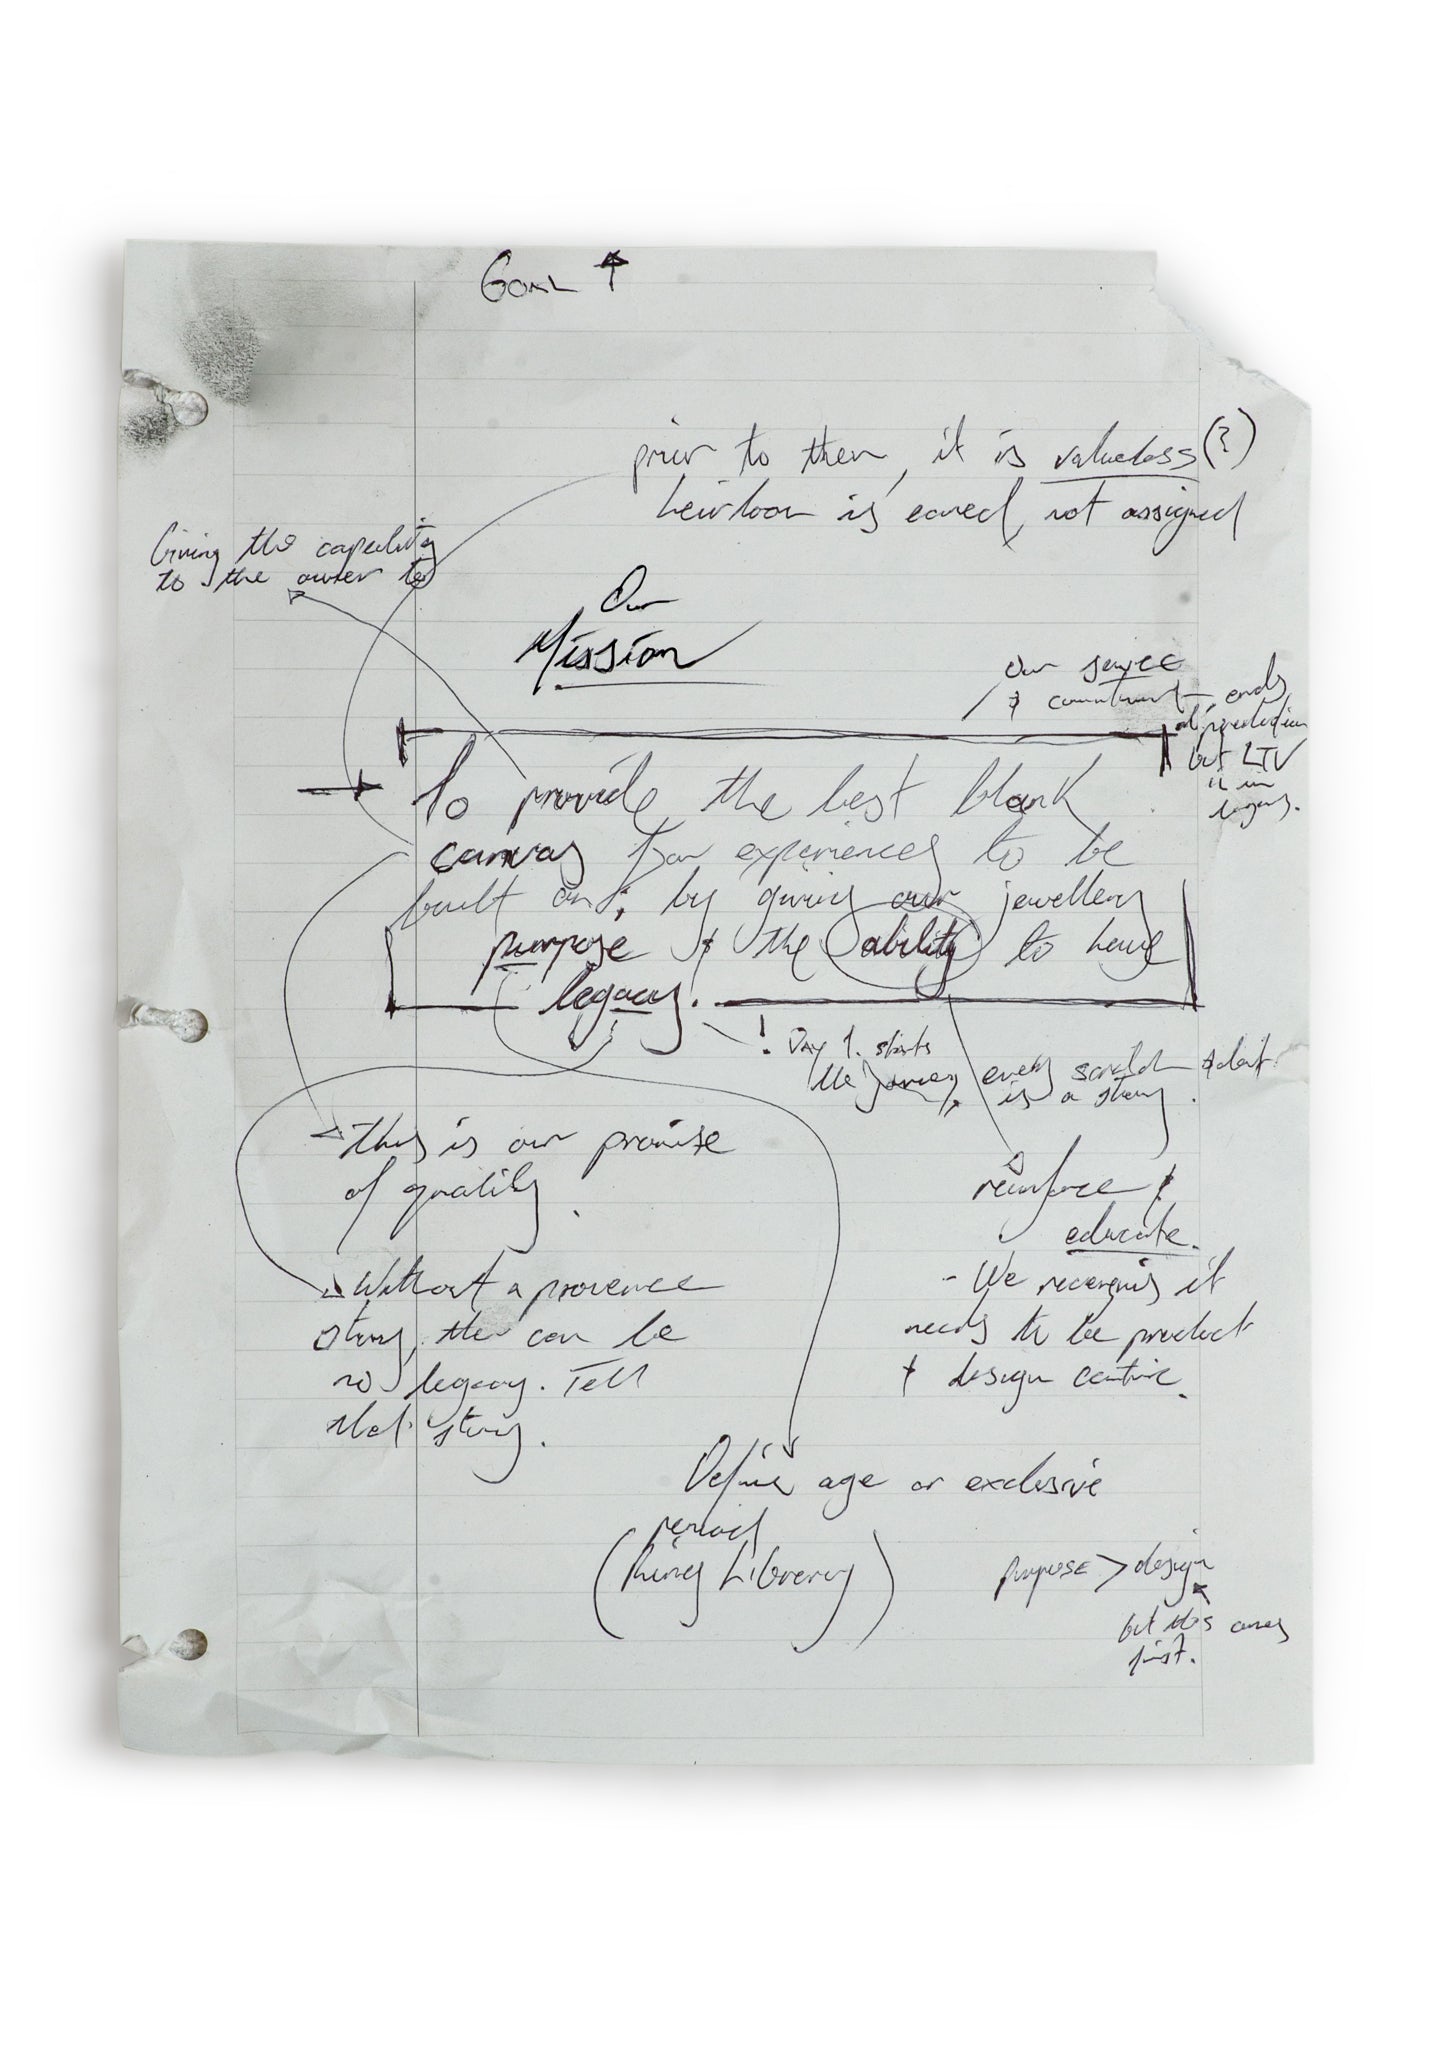 GOAL ↑
prior to then, it is valueless (?)
heirloom is earned, not assigned
Giving the capability
to the owner to
Our
Mission
Our service
& commitment ends
at production
but LTV
is in
legacy.
To provide the best blank
canvas for experiences to be
built on; by giving our jewellery
purpose & the ability to have
legacy.
! Day 1. starts
the journey, every scratch & dent
is a story.
this is our promise
of quality.
reinforce &
educate.
Without a provence
story, the can be
no legacy. Tell
that story.
- We recognis it
needs to be product
& design centric.
Define age or exclusive
period
(Ring Library)
purpose > design
but this comes
first.